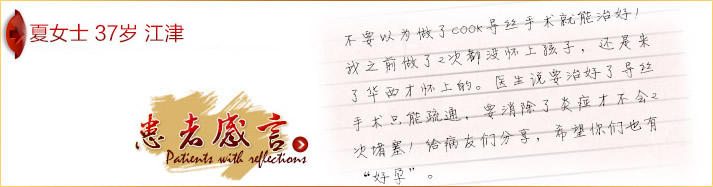 夏女士 37岁 江津
患者感言
Patients with reflections
不要以为做了cook导丝手术就能治好！
我之前做了2次都没怀上孩子，还是来
了华西才怀上的。医生说要治好了导丝
手术只能疏通，要消除了炎症才不会2
次堵塞！给病友们分享，希望你们也有
“好孕”。